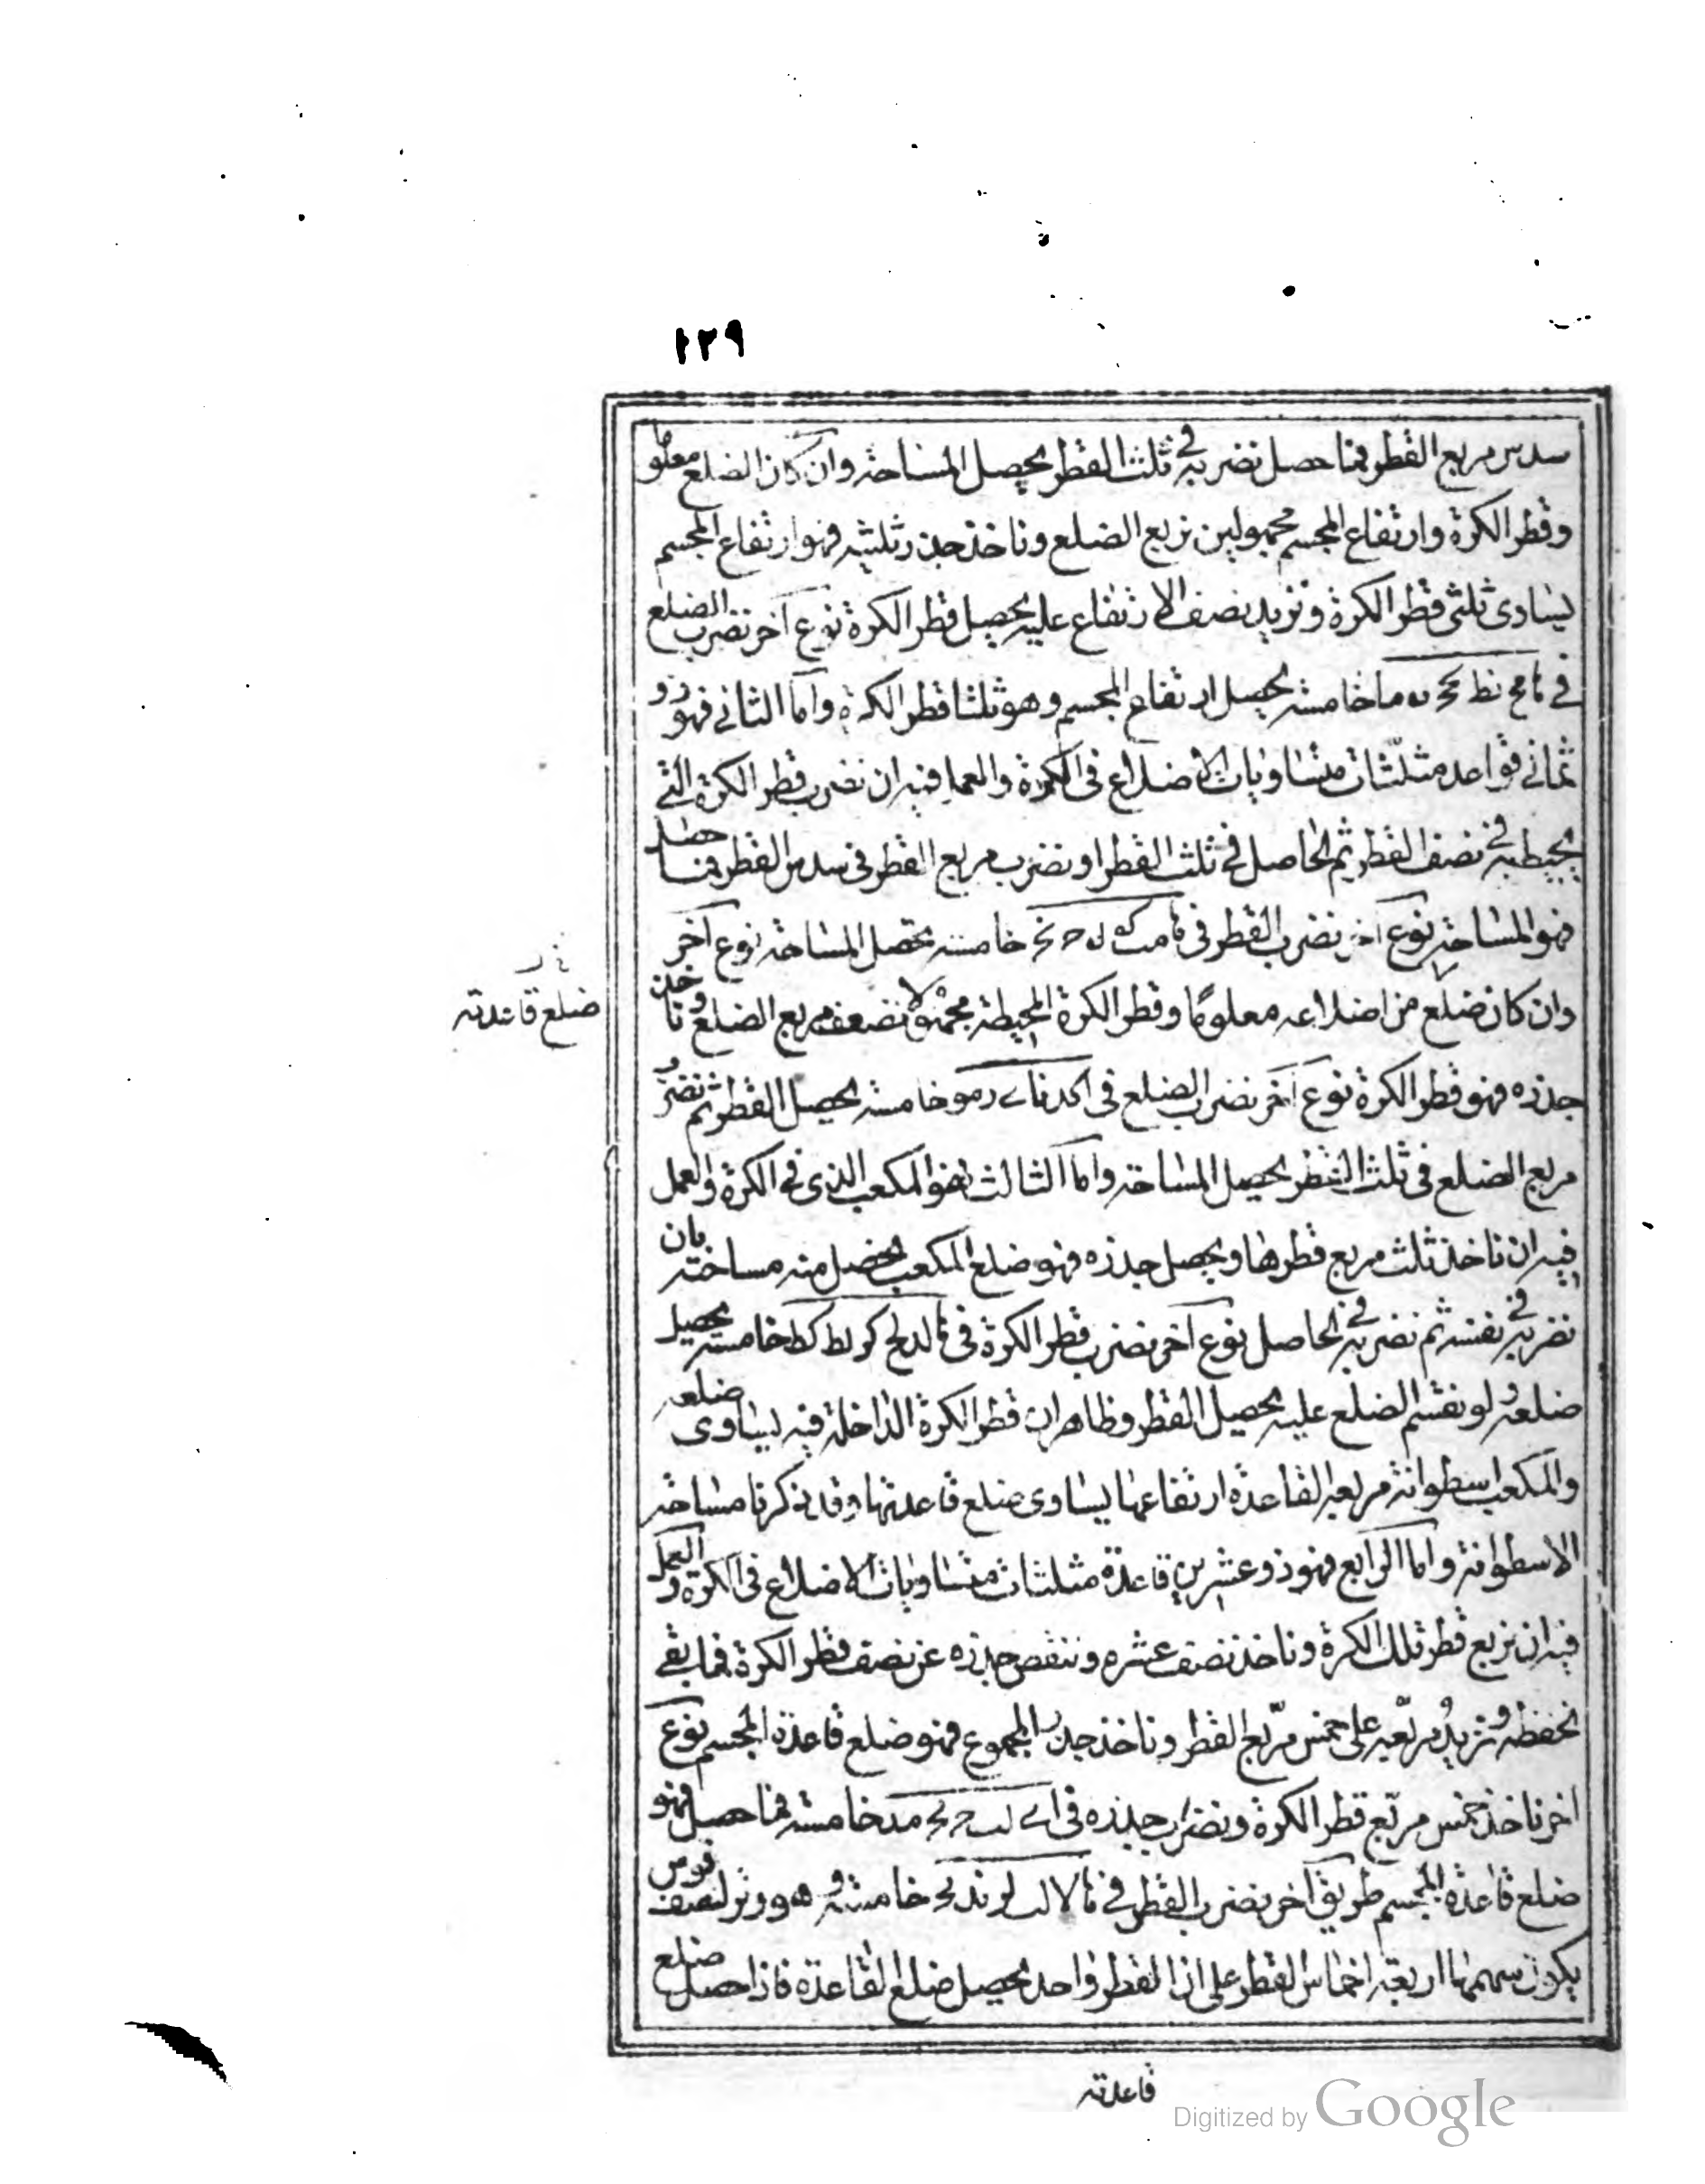 ١٢٩
سدس مربع القطر فما حصل نضربه في ثلث القطر يحصل المساحة وان كان الضلع معلوما
وقطر الكرة وارتفاع المجسم مجهولين نربع الضلع وناخذ جذر ثلثيه فهو ارتفاع المجسم
يساوي ثلثي قطر الكرة ونزيد نصف الارتفاع عليه يحصل قطر الكرة نوع آخر نضرب الضلع
في خامسة يحصل ارتفاع المجسم وهو ثلثا قطر الكرة واما الثاني فهو ذو
ثماني قواعد مثلثات متساويات الاضلاع في الكرة والعمل فيه ان نضرب قطر الكرة التي
يحيط به في نصف القطر ثم الحاصل في ثلث القطر او نضرب مربع القطر في سدس القطر فما حصل
فهو المساحة نوع آخر نضرب القطر في خامسة يحصل المساحة نوع آخر
وان كان ضلع من اضلاعه معلومًا وقطر الكرة المحيطة مجهولا نضعف مربع الضلع وناخذ
جذره فهو قطر الكرة نوع آخر نضرب الضلع في خامسة يحصل القطر ثم نضرب
مربع الضلع في ثلث القطر يحصل المساحة واما الثالث فهو المكعب الذي في الكرة والعمل
فيه ان ناخذ ثلث مربع قطرها ويحصل جذره فهو ضلع المكعب يحصل منه مساحته بان
نضربه في نفسه ثم نضربه في الحاصل نوع آخر نضرب قطر الكرة في ٠ لد لح كو لط كط خامسة يحصل
ضلعه ولو نقسم الضلع عليه يحصل القطر وظاهر ان قطر الكرة الداخلة فيه يساوي ضلعه
والمكعب اسطوانة مربعة القاعدة ارتفاعها يساوي ضلع قاعدتها وقد ذكرنا مساحة
الاسطوانة واما الرابع فهو ذو عشرين قاعدة مثلثات متساويات الاضلاع في الكرة والعمل
فيه ان نربع قطر تلك الكرة وناخذ نصف عشره وننقص جذره عن نصف قطر الكرة فما بقي
نحفظه ونزيد مربعه على خمس مربع القطر وناخذ جذر المجموع فهو ضلع قاعدة المجسم نوع
اخر ناخذ خمس مربع قطر الكرة ونضرب جذره في خامسة فما حصل فهو
ضلع قاعدة المجسم طريق آخر نضرب القطر في خامسة وهو وتر لنصف قوس
يكون سهمها اربعة اخماس القطر على ان القطر واحد يحصل ضلع القاعدة فاذا حصل ضلع
قاعدته
ضلع قاعدته
Digitized by Google